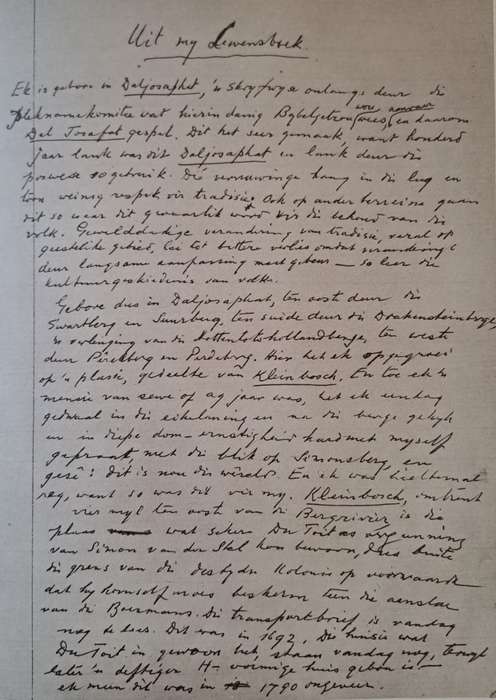 Uit my Lewensboek.
Ek is gebore in Daljosaphat, 'n skryfwyse onlangs deur die
Pleknamekomitee wat hierin danig Bybelgetrou wou wees, en daarom
Dal Josafat gespel. Dit het seer gemaak, want honderd
jaar lank was dit Daljosaphat en lank deur die
poswese so gebruik. Dié vernuwinge hang in die lug en
toon weinig respek vir tradisie. Ook op ander terreine gaan
dit so waar dit gevaarlik word vir die behoud van die
volk. Gewelddadige verandering van tradisie, veral op
geestelike gebied, lei tot bittere verlies omdat verandering
deur langsame aanpassing moet gebeur — so leer die
kultuurgeskiedenis van volke.
Gebore dus in Daljosaphat, ten oost deur die
Swartberg en Suurberg, ten suide deur die Drakensteinberge,
'n verlenging van die Hottentotshollandberge, ten weste
deur Pêrelberg en Perdeberg. Hier het ek opgegroei
op 'n plasie, gedeelte van Kleinbosch. En toe ek 'n
mensie van sewe of ag jaar was, het ek eendag
gedwaal in die eikelaning en na die berge gekyk
en in diepe dom-ernstigheid hard met myself
gepraat met die blik op Simonsberg, en
gesê: dit is nou die wêreld. En ek was heeltemal
reg, want so was dit vir my. Kleinbosch, omtrent
vier myl ten oost van die Bergrivier is die
plaas wat sekere Du Toit as vergunning
van Simon van der Stel kon bewoon, dus buite
die grens van die destydse Kolonie op voorwaarde
dat hy homself moes beskerm teen die aanslae
van die Boesmans. Die transportbrief is vandag
nog te lees. Dit was in 1692. Die huisie wat
Du Toit in gewoon het, staan vandag nog, terwyl
later 'n deftiger H-vormige huis gebou is —
ek meen dit was in 1790 ongeveer.